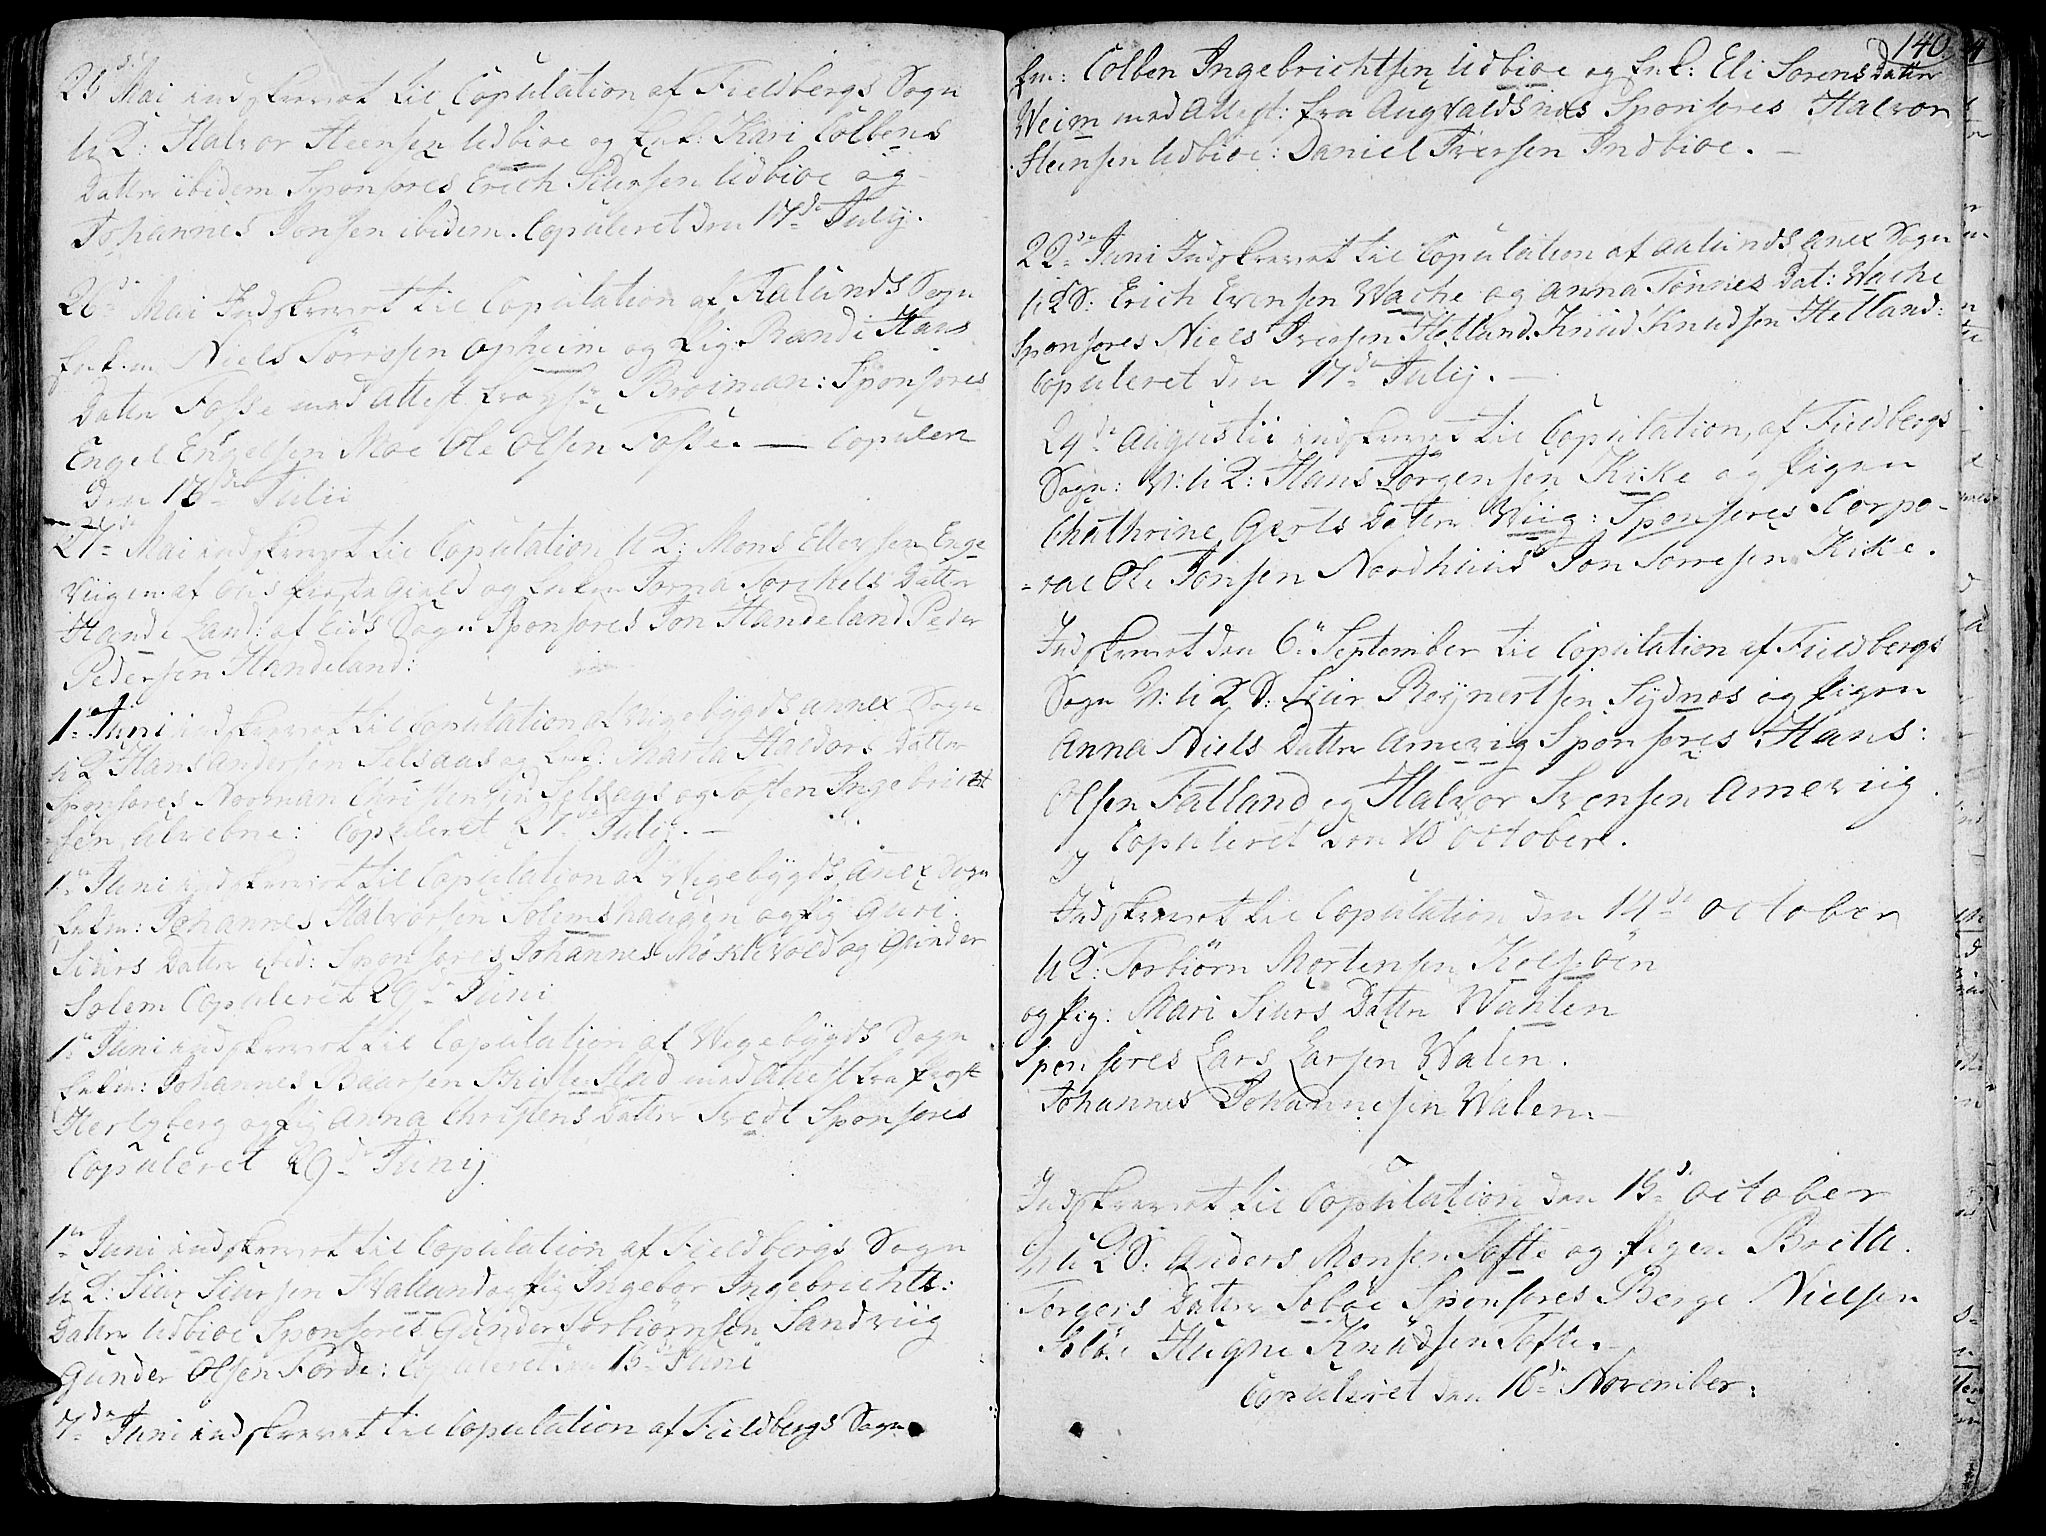 Mai indskrevet til Copulation af Fieldbergs Sogn
Halvor Steensen Udbioe og Enk: Kari Colbens
Datter ibidem Sponsores Erich Siursen Udbioe og
Johannes Jonsen ibidem. Copuleret den 17de Julij.
26de Mai Indskrevet til Copulation af Aalunds Sogn
Enkem Niels Tørresen Opheim og Pig Randi Hans
Datter Fosse med Attest fra Sponsores
Engel Engelsen Moe Ole Olsen Fosse. — Copuler
Den 16de Julii
27de Mai indskrevet til Copulation U K: Mons Ellevsen Enge
Viigen af Giæld og Enken Torkels Datter
Hande Land: af Eids Sogn Sponsores Jon Handeland Peder
Pedersen Handeland:
1te Juni indskrevet til Copulation af Wigebygds annex Sogn
U K Hans Andersen Selsaas og Enk: Marta Haldors Datter
Sponsores Noorman Christensen Selsaas og Tosten Ingebricht
sen Alvebne: Copuleret 21de Julij. —
1te Juni indskrevet til Copulation af Wigebygds Anex Sogn
Enkem: Johannes Halvorsen Solemshaugen og Pig Guri
Siurs Datter ibid: Sponsores Johannes Møklevold og Gunder
Solem Copuleret 29de Juni
1te Juni indskrevet til Copulation af Wigebygds Sogn
Enkem: Johannes Baarsen med Attest fra
og Pig Anna Christens Datter Tvedt Sponsores
Copuleret 29de Junij
1te Juni indskrevet til Copulation af Fieldbergs Sogn
U K: Siur Siursen Waland og Pig Ingebor Ingebrichts:
Datter Udbioe Sponsores Gunder Torbiørnsen Sandviig
Gunder Olsen Førde: Copuleret den 15de Juni
7de Juni indskrevet til Copulation af Fieldbergs Sogn
140
Em: Colben Ingebrichtsen Udbioe og Enk: Eli Sorens Datter
Weim med Attest: fra Augvaldsnæs Sponsores Halvor
Steensen Udbioe: Daniel Iversen Indbioe. —
22de Juni Indskrevet til Copulation af Aalunds Anex Sogn
Erich Evensen Wache og Anna Tønnes Dat: Wache
Sponsores Niels Iversen Hetland. Knud Knudsen Hetland:
Copuleret den 17de Julij. —
29de Augustii indskrevet til Copulation af Fieldbergs
Sogn: Hans Jørgensen Kike og Pigen
Chathrine Gerts Datter Wiig: Sponsores Corpo-
-ral Ole Jonsen Nordhuus Jon Kike.
Indskrevet den 6te September til Copulation af Fieldbergs
Sogn Siur Reynertsen Sydnæs og Pigen
Anna Niels Datter Ameviig Sponsores Hans:
Olsen Fatland og Halvor Svensen Ameviig.
Copuleret den 10 October.
Indskrevet til Copulation den 14de October
Torbiørn Mortensen
og Pig: Mari Siurs Datter Wahlen
Sponsores Lars Larsen Walen.
Johannes Johannesen Walen. —
Indskrevet til Copulation den 15de October
Anders Monsen Tofte og Pigen Britte
Torgers Datter Soløe Sponsores Berge Nielsen
Soløe Hagne Knudsen Tofte. —
Copuleret den 16de November: